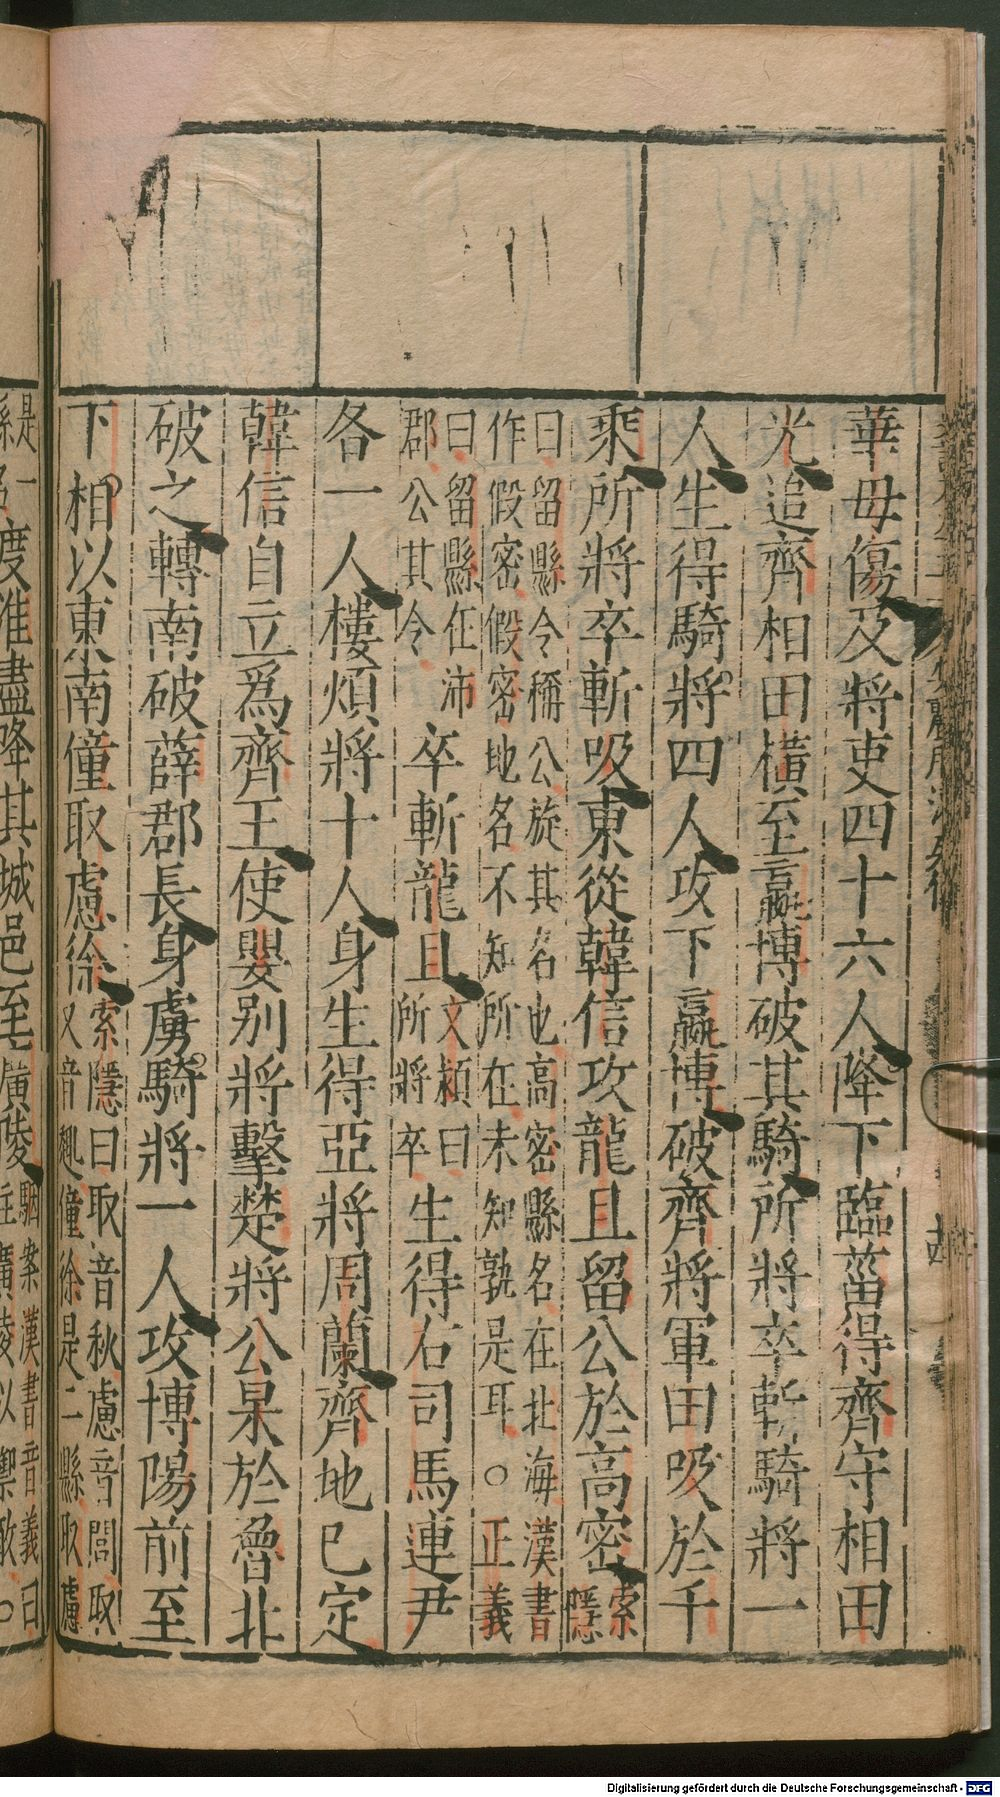 華毋傷及將吏四十六人降下臨菑得齊守相田
光追齊相田橫至嬴博破其騎所將卒斬騎將一
人生得騎將四人攻下嬴博破齊將軍田吸於千
乘所將卒斬吸東從韓信攻龍且留公於高密索
隱
曰留縣令稱公旋其名也高密縣名在北海漢書
作假密假密地名不知所在未知孰是耳○正義
曰留縣在沛
郡公其令
卒斬龍且
文穎曰
所將卒
生得右司馬連尹
各一人樓煩將十人身生得亞將周蘭齊地已定
韓信自立爲齊王使嬰别將擊楚將公杲於魯北
破之轉南破薛郡長身虜騎將一人攻博陽前至
下相以東南僮取慮徐
索隱曰取音秋慮音閭取
又音趣僮徐是二縣取慮
是一
縣名
度淮盡降其城邑至廣陵
駰案漢書音義曰
住廣陵以禦敵○
Digitalisierung gefördert durch die Deutsche Forschungsgemeinschaft - DFG